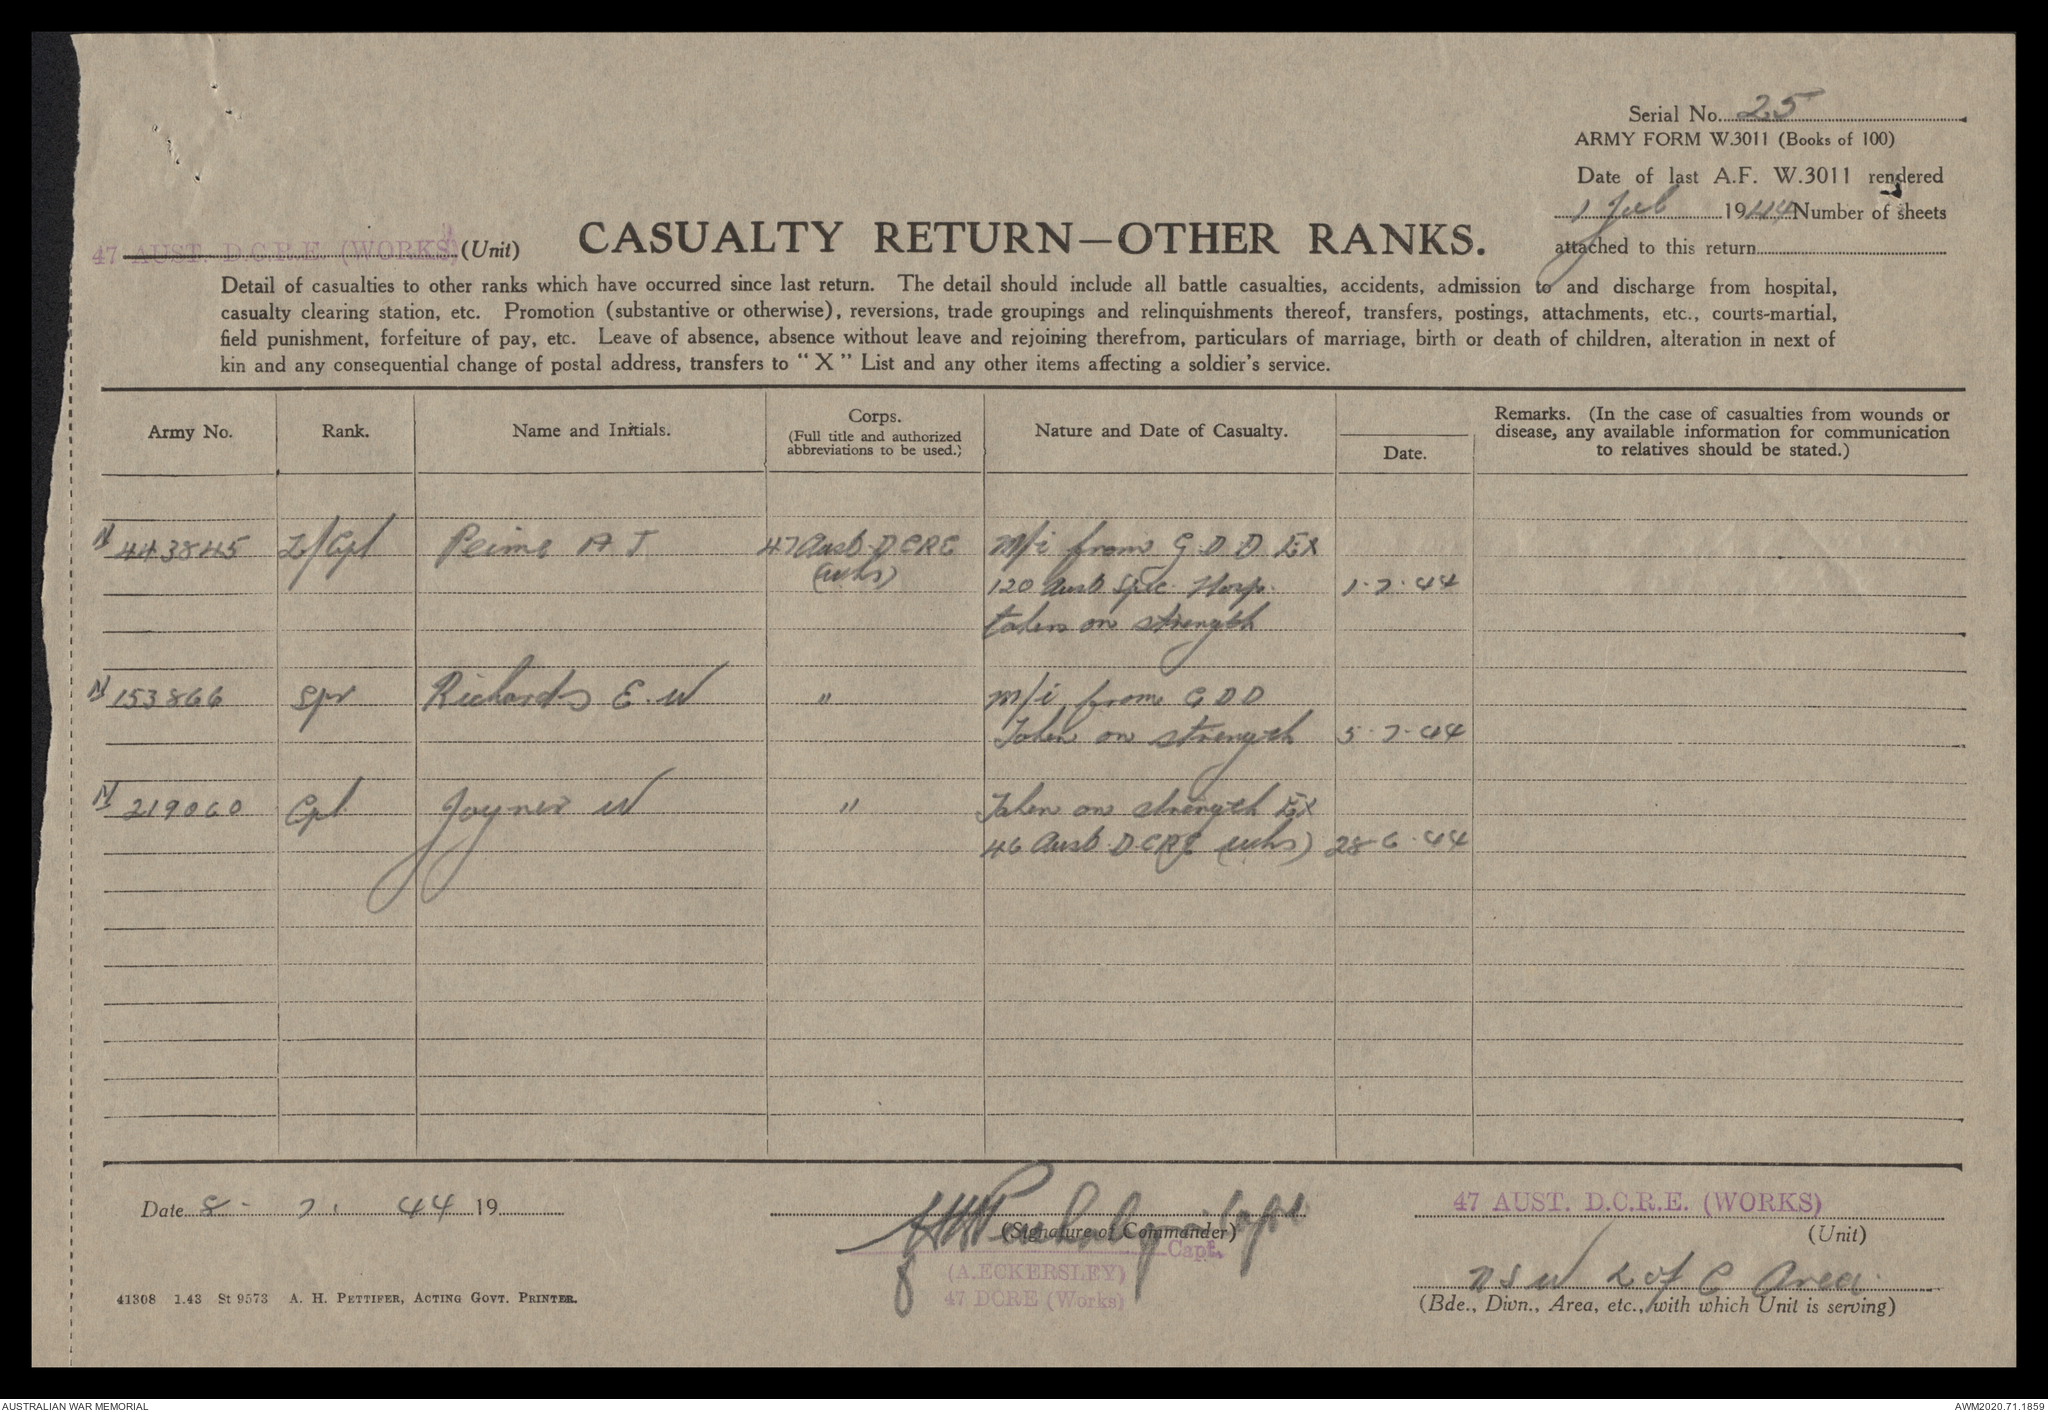 Serial No. 25
ARMY FORM W.3011 (Books of 100)
Date of last A.F. W.3011 rendered
1 July 1944 Number of sheets
attached to this return
47 AUST. D.C.R.E. (WORKS) (Unit)
CASUALTY RETURN—OTHER RANKS.
Detail of casualties to other ranks which have occurred since last return. The detail should include all battle casualties, accidents, admission to and discharge from hospital,
casualty clearing station, etc. Promotion (substantive or otherwise), reversions, trade groupings and relinquishments thereof, transfers, postings, attachments, etc., courts-martial,
field punishment, forfeiture of pay, etc. Leave of absence, absence without leave and rejoining therefrom, particulars of marriage, birth or death of children, alteration in next of
kin and any consequential change of postal address, transfers to "X" List and any other items affecting a soldier's service.
Army No. Rank. Name and Initials. Corps. (Full title and authorized abbreviations to be used.) Nature and Date of Casualty. Date. Remarks. (In the case of casualties from wounds or
disease, any available information for communication
to relatives should be stated.)
N 443845 L/Cpl A J 47 Aust DCRE m/i from G D D Ex
(wks) 120 Aust Spec. Hosp. 1.7.44
taken on strength
N 153866 Spr Richards E. W " m/i from G D D
Taken on strength 5.7.44
N 219060 Cpl Joyner W " Taken on strength Ex
46 Aust DCRE (wks) 28.6.44
Date 8. 7. 44 19
(Signature of Commander)
Capt.
(A. ECKERSLEY)
47 DCRE (Works)
47 AUST. D.C.R.E. (WORKS)
(Unit)
NSW L of C Area.
(Bde., Divn., Area, etc., with which Unit is serving)
41308 1.43 St 9573 A. H. PETTIFER, ACTING GOVT. PRINTER.
AUSTRALIAN WAR MEMORIAL
AWM2020.71.1859